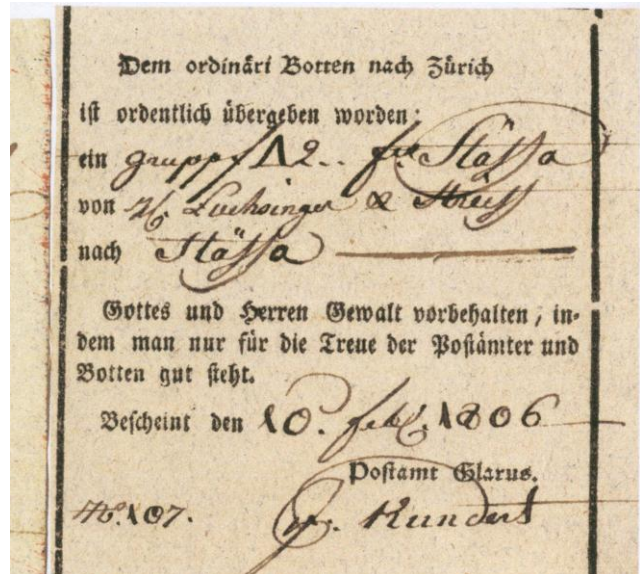 Dem ordinäri Botten nach Zürich
ist ordentlich übergeben worden:
ein grupp f 12.. fco Stäffa
von H. Luchsinger & Streiff
nach Stäffa
Gottes und Herren Gewalt vorbehalten, in-
dem man nur für die Treue der Postämter und
Botten gut steht.
Bescheint den 10. feb. 1806
Postamt Glarus.
No. 107.
Kundert